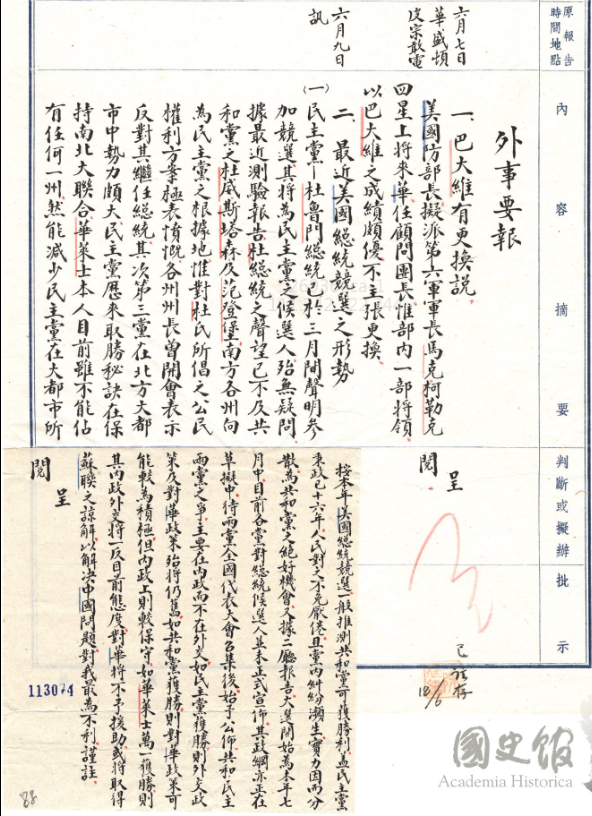 原報告
時間地點
內容摘要
判斷或擬辦
批示
六月七日
華盛頓
皮宗敢電
六月九日
訊
外事要報
一、巴大維有更換說
美國防部長擬派第六軍軍長馬克柯勒克
四星上將來華任顧問團長惟部內一部將領
以巴大維之成績頗優不主張更換
二、最近美國總統競選之形勢
(一)民主黨—杜魯門總統已於三月間聲明參
加競選其將為民主黨之候選人殆無疑問
據最近測驗報告杜總統之聲望已不及共
和黨之杜威斯塔森及范登堡南方各州向
為民主黨之根據地惟對杜氏所倡之公民
權利方案極表憤慨各州州長曾開會表示
反對其繼任總統其次第三黨在北方大都
市中勢力頗大民主黨歷來取勝秘訣在保
持南北大聯合華萊士本人目前雖不能佔
有任何一州然能減少民主黨在大都市所
呈
閱
已註存
18/6
按本年美國總統競選一般推測共和黨可獲勝利蓋民主黨
秉政已十六年人民對之不免厭倦且黨內糾紛瀕生實力因而分
散為共和黨之絕好機會又據二廳報告大選開始為本年七
月中目前各黨對總統候選人並未正式宣佈其政綱亦正在
草擬中待兩黨八全國代表大會召集後始予公佈共和民主
兩黨之爭主要在內政而不在外交如民主黨獲勝則外交政
策及對華政策殆將仍舊如共和黨獲勝則對華政策可
能較為積極但內政上則較保守如華萊士萬一獲勝則
其內政外交將一反目前態度對華將不予援助或將取得
蘇聯之諒解以解決中國問題對我最為不利謹註
呈
閱
113074
88
國史館
Academia Historica